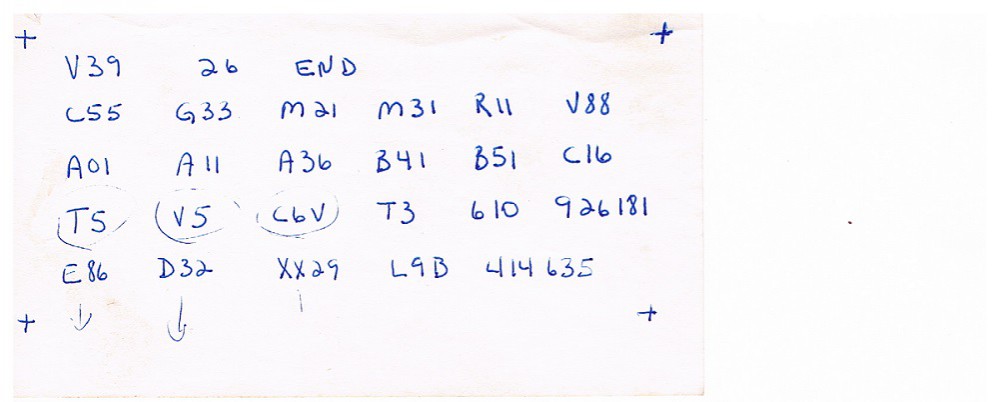 V39 26 END
C55 G33 M21 M31 R11 V88
A01 A11 A36 B41 B51 C16
T5 V5 C6V T3 610 926181
E86 D32 XX29 L9B 414635